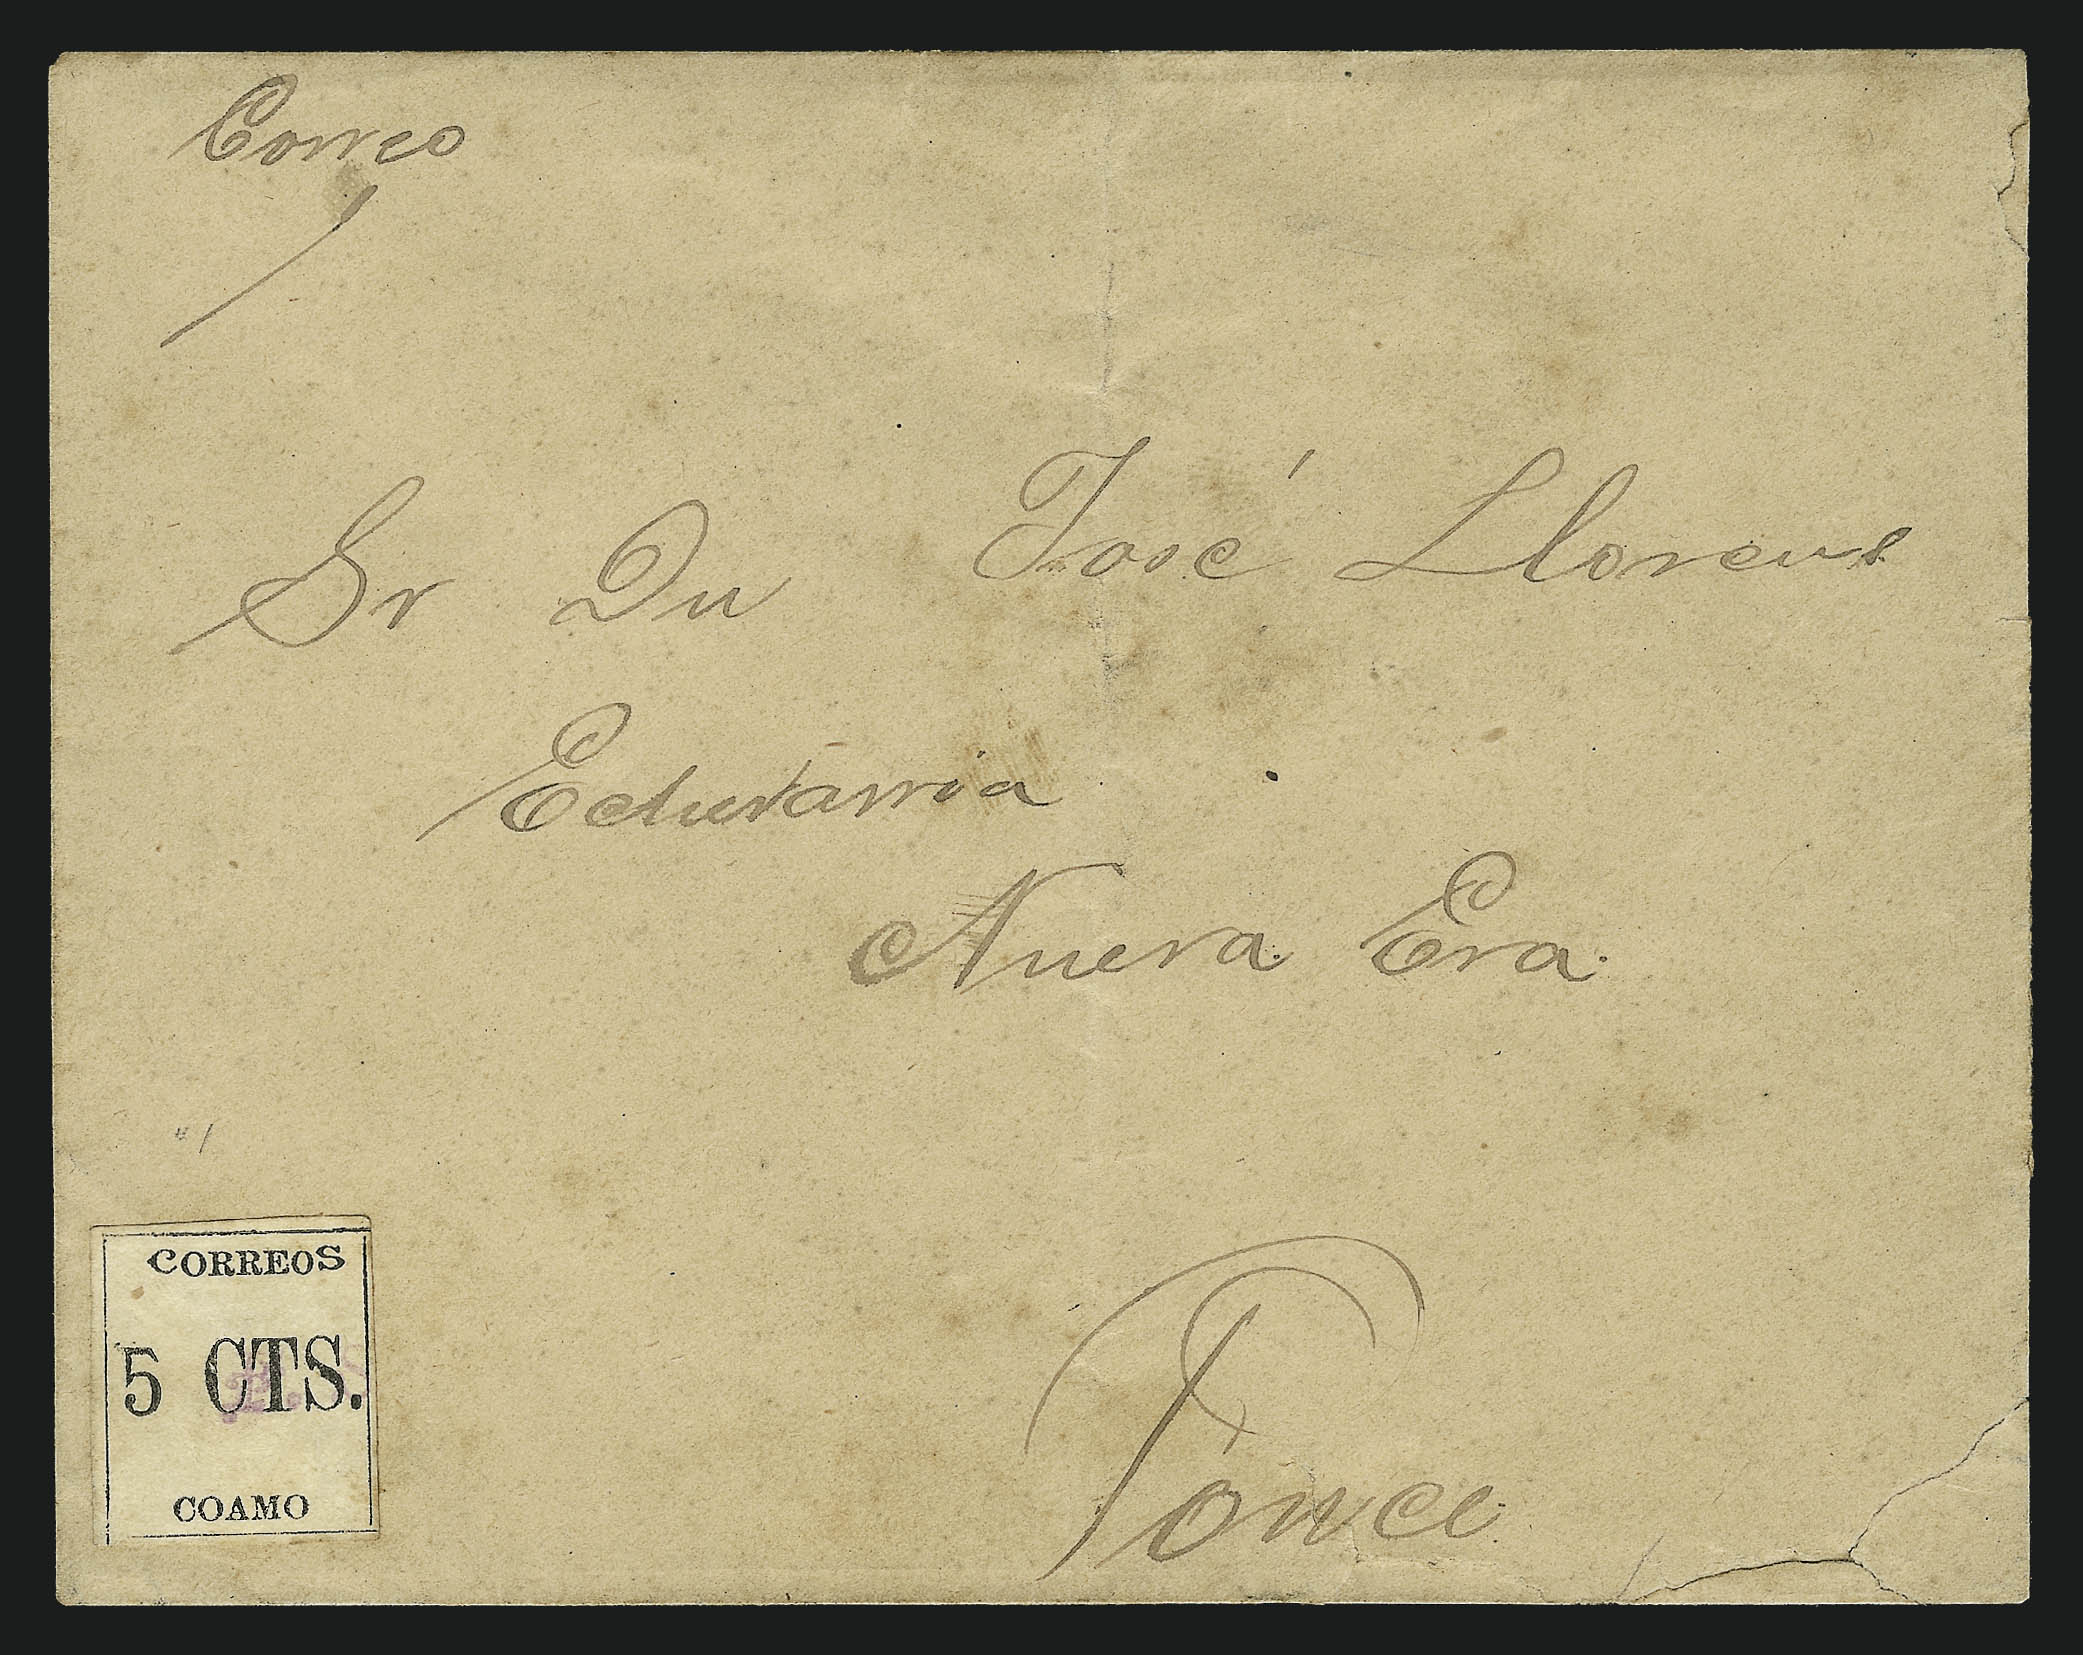 Correo
Sr Dn José Llorens
Echevarria
Nueva Era.
CORREOS
5 CTS.
COAMO
Ponce